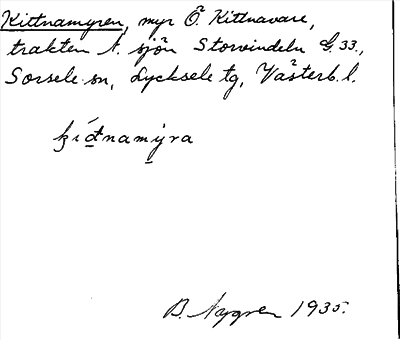 Kittnamyren, myr Ö. Kittnavare,
trakten N. sjön Storvindeln G. 33.,
Sorsele sn, Lycksele tg, Västerb. l.
ꞣíđnamýra
B. Nygren 1935.